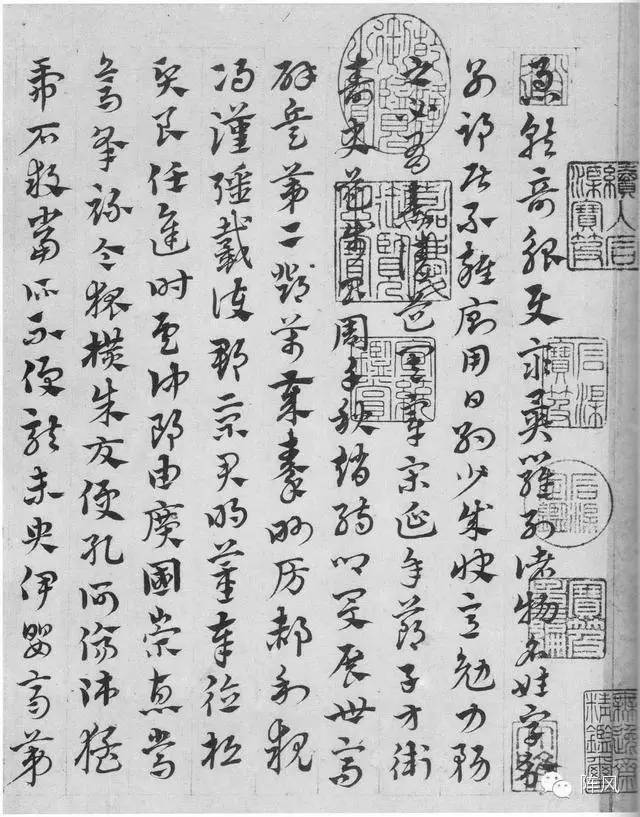 急就奇觚與衆異羅列諸物名姓字分
別部居不雜廁用日約少誠快意勉力務
之必有憙請道其章宋延年鄭子方衛
壽史步昌周千秋趙孺卿爰展世高
辟兵第二鄧萬歲秦眇房郝利親
馮漢彊戴護郡景君明董奉德桓
賢良任逢時侯仲郎由廣國榮惠常
烏承祿令狐橫朱交便孔何傷師猛
虎石敢當所不侵龍未央伊嬰齊
嘉慶御覽之寶
石渠寶笈
阵风